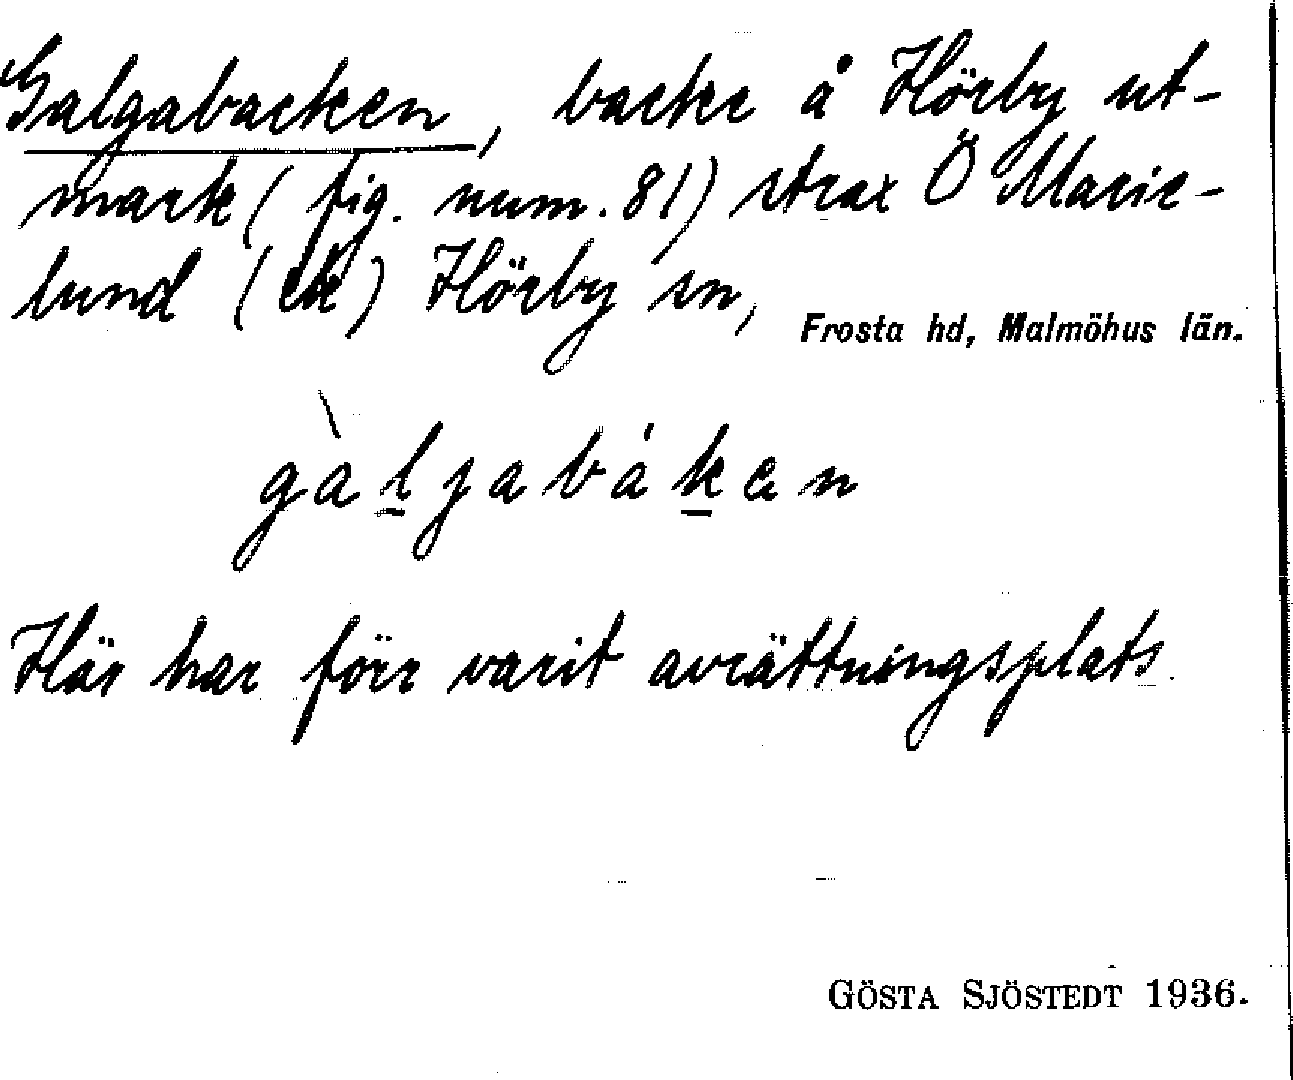 Galgabacken, backe å Hörby ut-
mark (fig. num. 81) strax Ö Marie-
lund (ek) Hörby sn,
Frosta hd, Malmöhus län.
gàljabákɐn
Här har förr varit avrättningsplats.
GÖSTA SJÖSTEDT 1936.